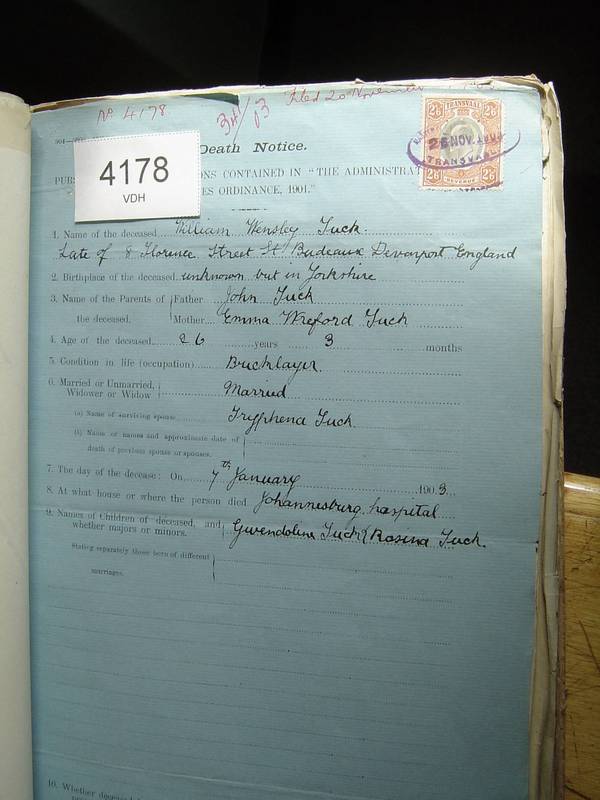 AP. 4178
341/03 Filed 20 November
4178
VDH
TRANSVAAL
2/6 2/6
26 NOV.
TRANSVAAL
2/6 REVENUE 2/6
Death Notice.
CONTAINED IN "THE ADMINISTRAT
ES ORDINANCE, 1901."
1. Name of the deceased William Wensley Tuck.
Late of 8 Florence Street St. Budeaux Devonport England
2. Birthplace of the deceased unknown but in Yorkshire
3. Name of the Parents of Father John Tuck
the deceased. Mother Emma Wreford Tuck
4. Age of the deceased 26 years 3 months
5. Condition in life (occupation) Bricklayer.
6. Married or Unmarried, Married
Widower or Widow
(a) Name of surviving spouse Tryphena Tuck
(b) Name or names and approximate date of
death of previous spouse or spouses.
7. The day of the decease: On 7th January 1903.
8. At what house or where the person died Johannesburg hospital
9. Names of Children of deceased, and Gwendoline Tuck & Rosina Tuck.
whether majors or minors.
Stating separately those born of different
marriages.
10. Whether decea